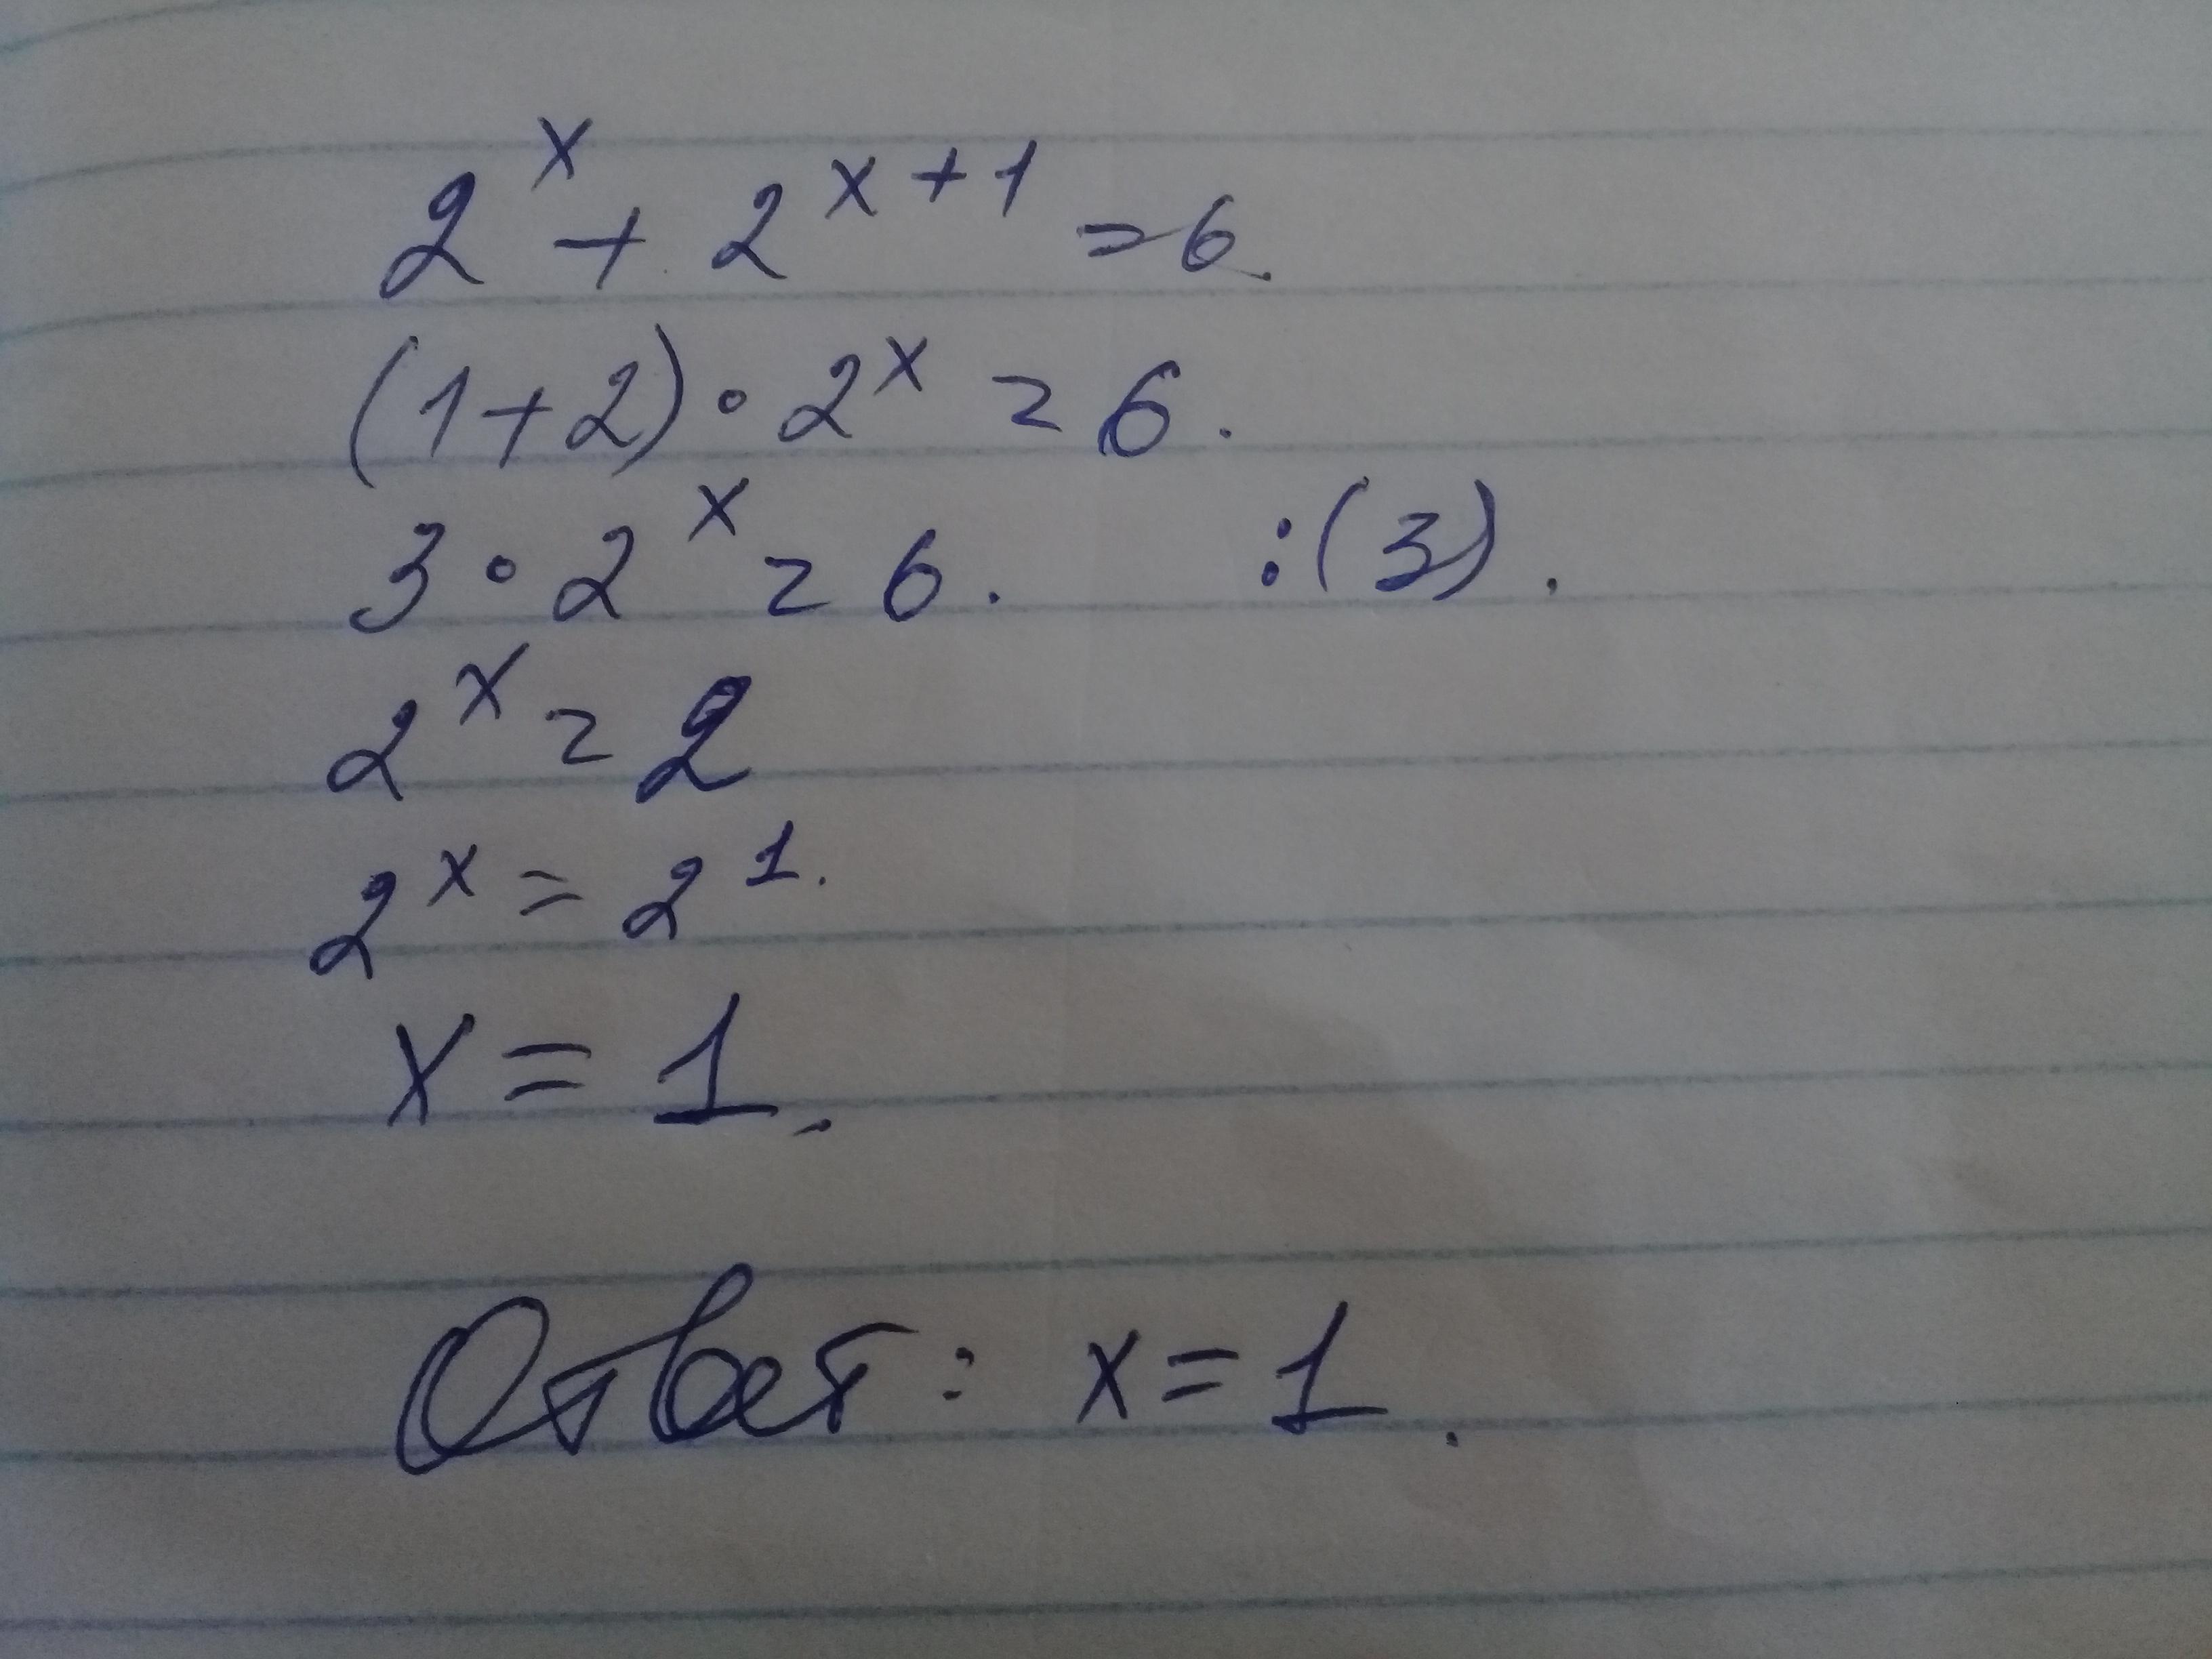 2^x + 2^{x+1} = 6.
(1+2) · 2^x = 6.
3 · 2^x = 6. :(3).
2^x = 2
2^x = 2^1.
x = 1.
Ответ: x = 1.